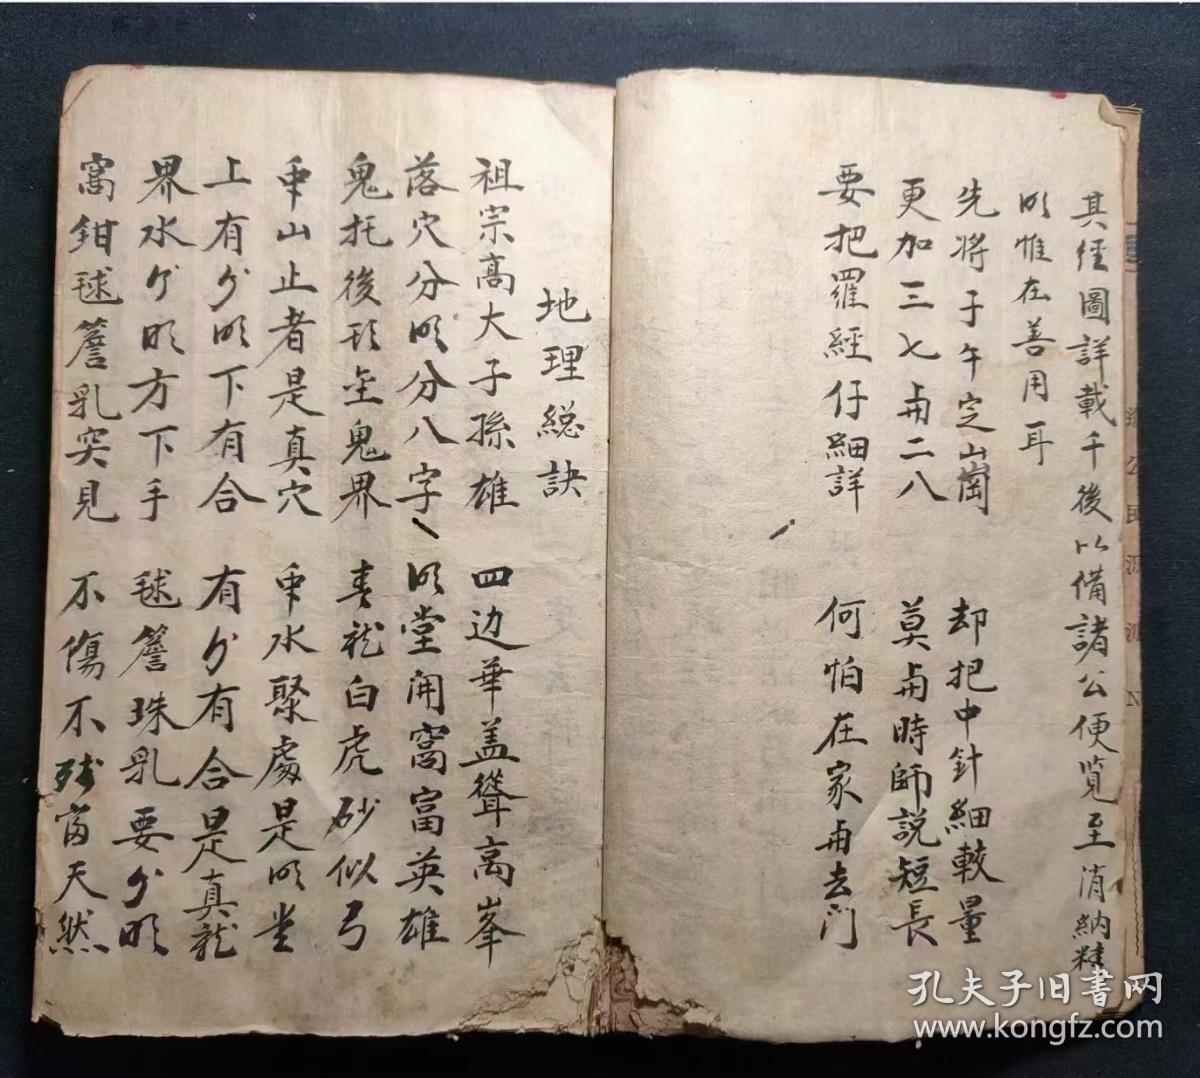 其經圖詳載千後以備諸公便覧至消納精
明惟在善用耳
先将子午定山崗 却把中針細較量
更加三七与二八 莫与時師説短長
要把羅經仔細詳 何怕在家与去門
地理総訣
祖宗高大子孫雄 四边華盖聳高峯
落穴分明分八字 明堂開窩富英雄
鬼托後球奎鬼界 青龙白虎砂似弓
串山止者是真穴 串水聚處是明堂
上有分明下有合 有分有合是真龙
界水分明方下手 毬簷珠乳要分明
窩鉗毬簷乳突見 不傷不残當天然
孔夫子旧书网
www.kongfz.com